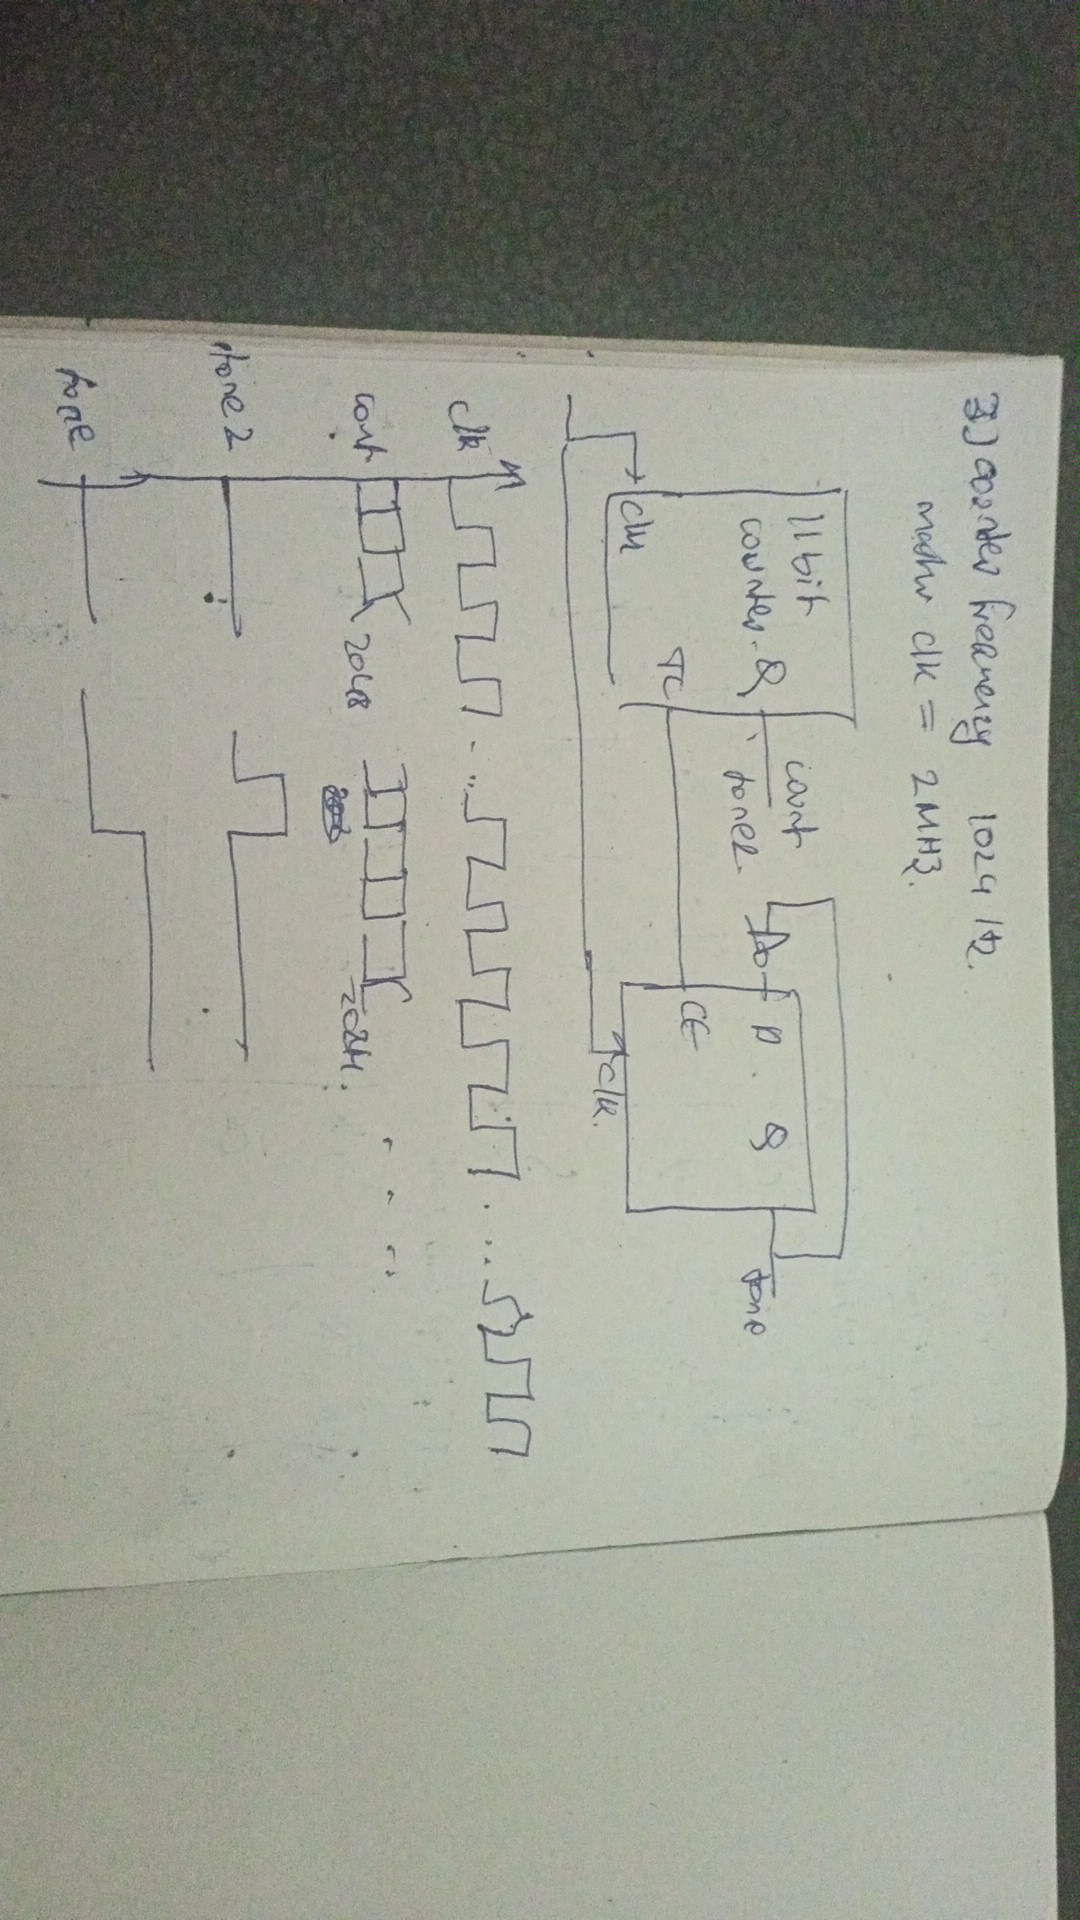 3) counter frequency 1024 Hz.
clk = 2MHz.
11 bit
counter
Q
count
tone2
TC
clk
D
Q
CE
clk.
tone
clk
count
2048
tone2
tone